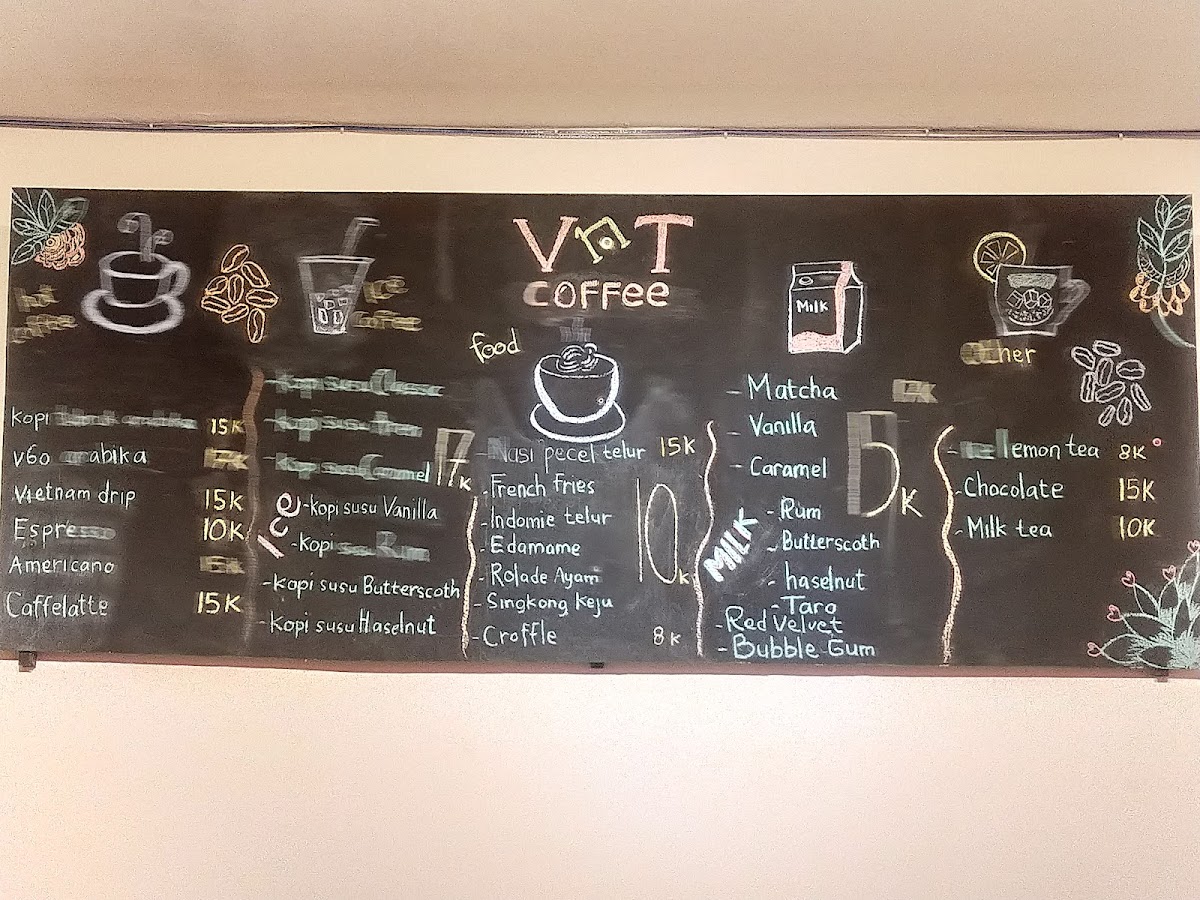 V T
COFFEE
kopi 15K
v60 arabika
Vietnam drip 15K
Espresso 10K
Americano
Caffelatte 15K
Ice
Kopi susu Caramel
-kopi susu Vanilla
-kopi
-kopi susu Butterscoth
-kopi susu Haselnut
17K
food
-Nasi pecel telur 15K
-French fries
-Indomie telur
-Edamame
-Rolade Ayam
-Singkong Keju
10K
-Croffle 8K
Milk
MILK
-Matcha
-Vanilla
-Caramel
-Rum
-Butterscoth
-haselnut
-Taro
-Red Velvet
-Bubble Gum
Other
lemon tea 8K
-Chocolate 15K
-Milk tea 10K